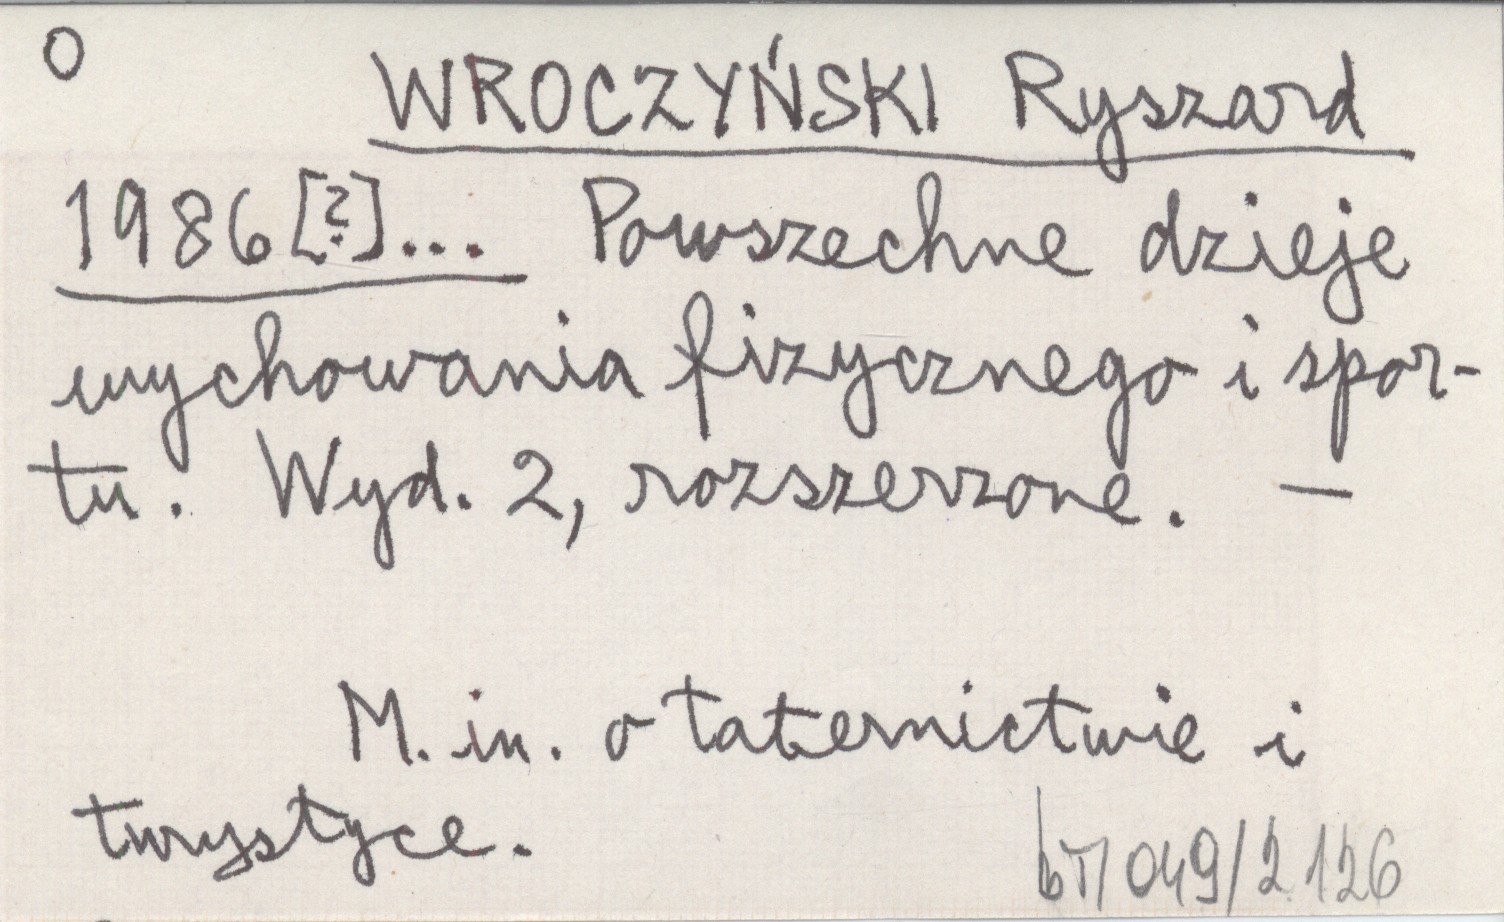 O
WROCZYŃSKI Ryszard
1986[?]... Powszechne dzieje
wychowania fizycznego i spor-
tu. Wyd. 2, rozszerzone. —
M. in. o taternictwie i
turystyce.
bT/049/2.126